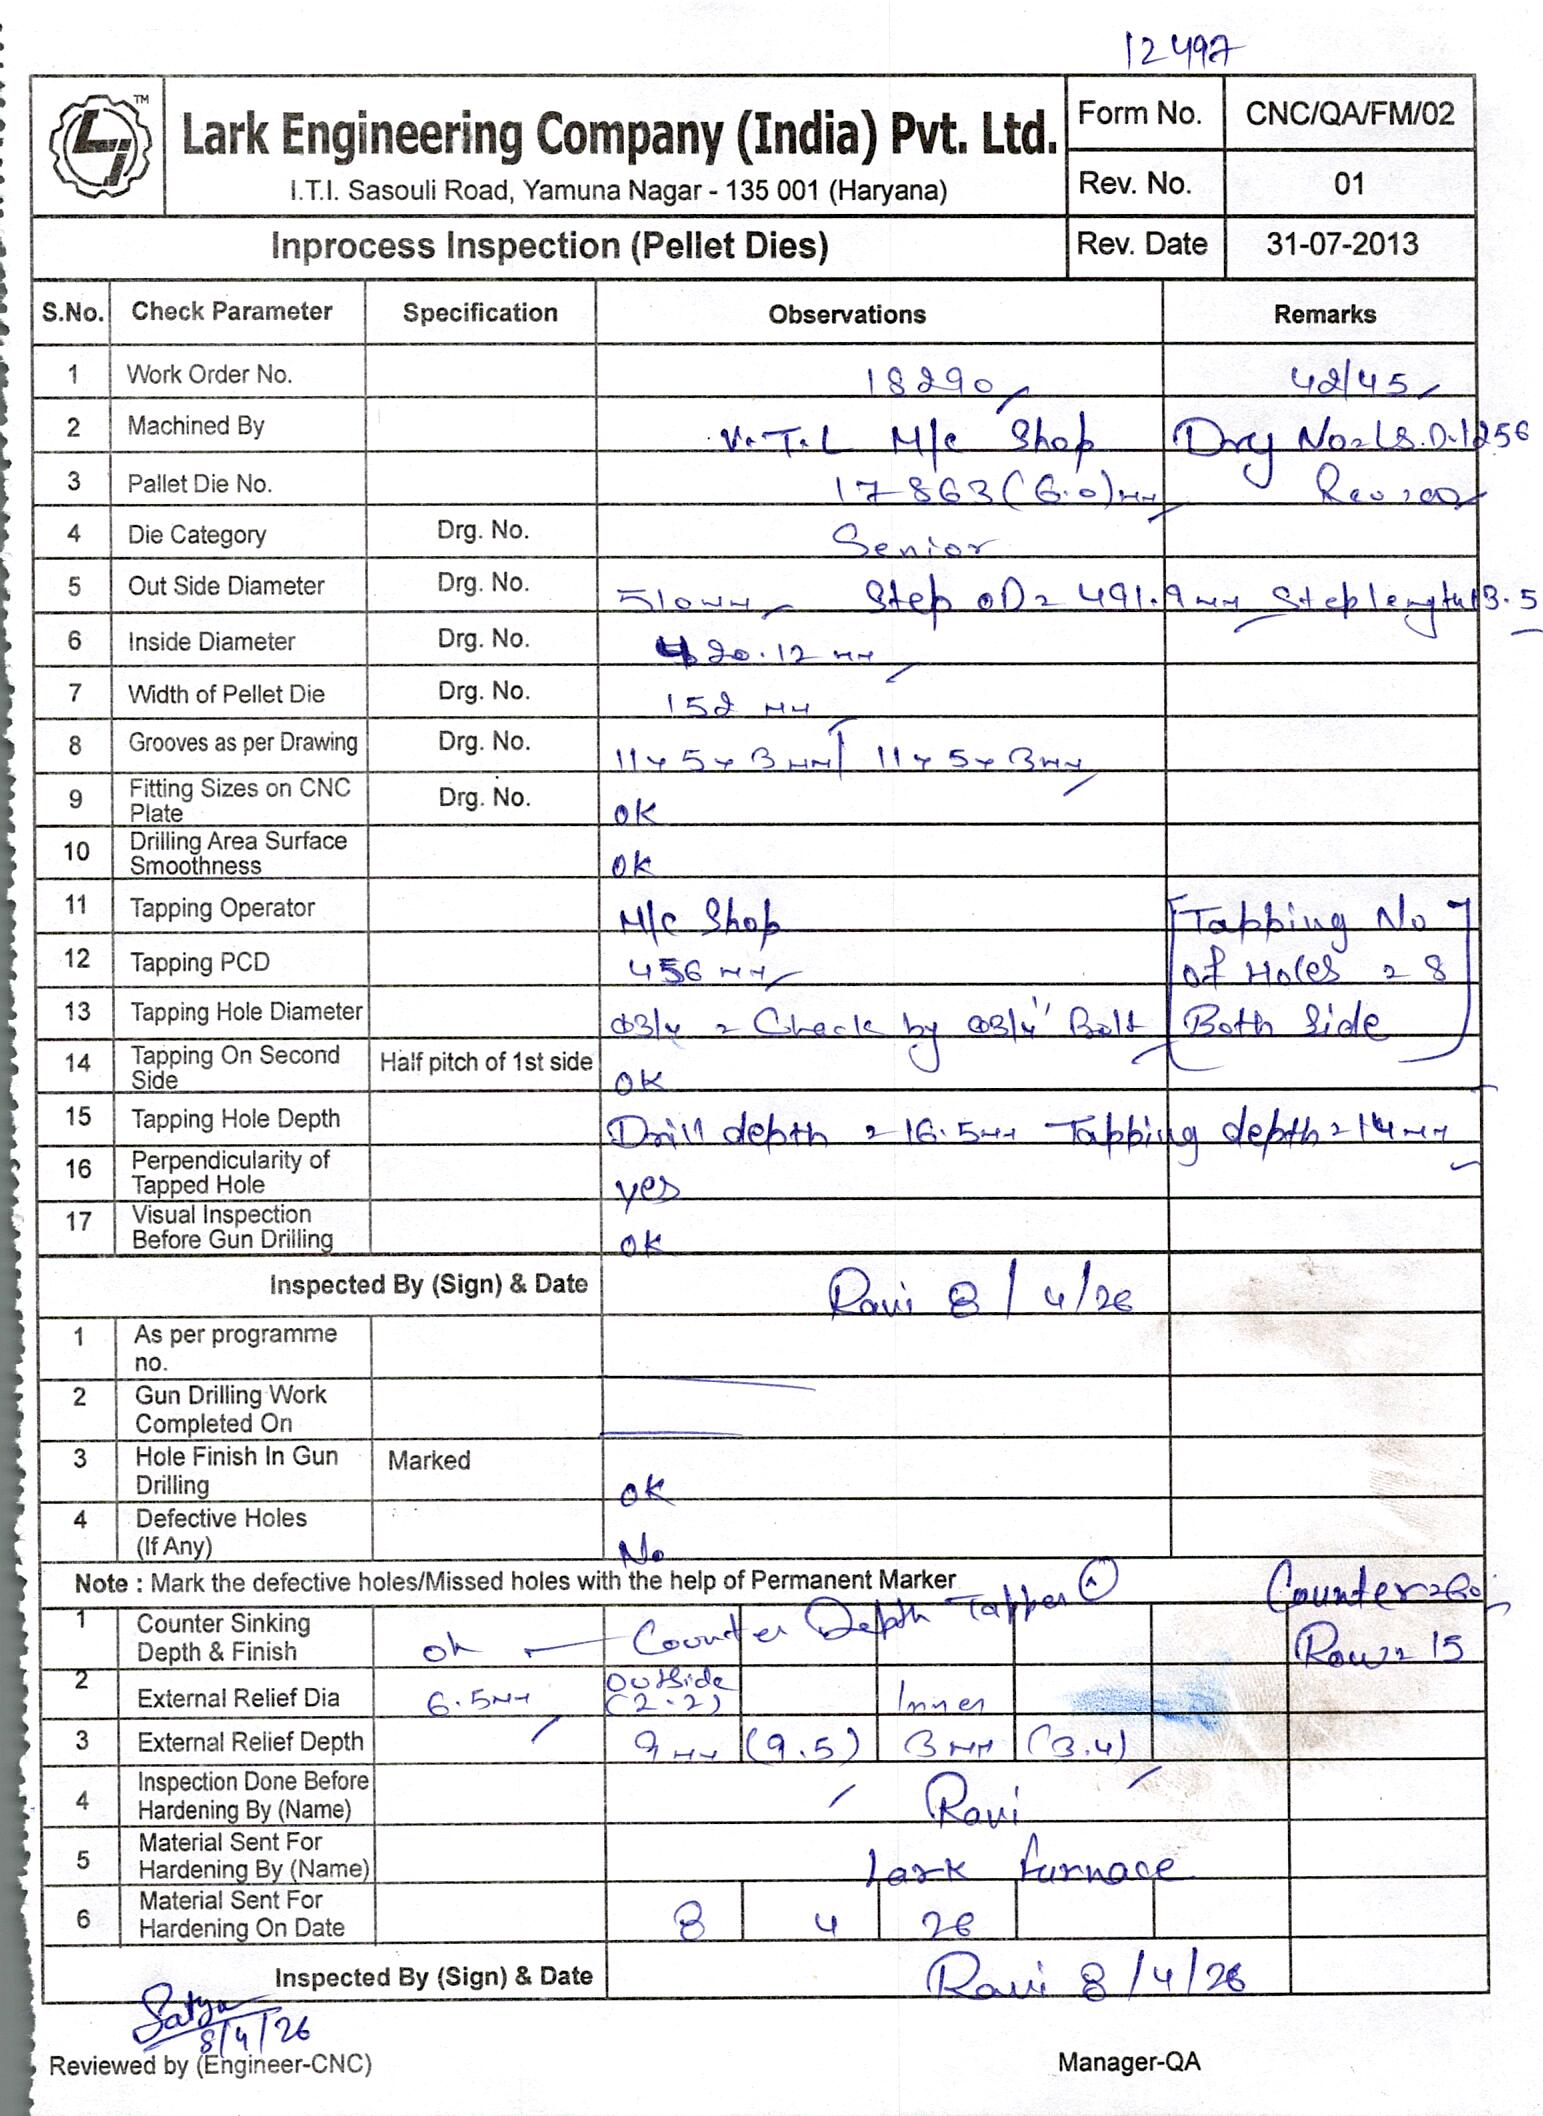 12497
LJ TM
Lark Engineering Company (India) Pvt. Ltd.
I.T.I. Sasouli Road, Yamuna Nagar - 135 001 (Haryana)
Form No. CNC/QA/FM/02
Rev. No. 01
Inprocess Inspection (Pellet Dies) Rev. Date 31-07-2013
S.No. Check Parameter Specification Observations Remarks
1 Work Order No. 18290 42/45
2 Machined By V.T.L M/c Shop Drg No=LS.D.1256
3 Pallet Die No. 17863 (6.0)mm
4 Die Category Drg. No. Senior
5 Out Side Diameter Drg. No. 510mm Step OD= 491.9mm Step length 13.5
6 Inside Diameter Drg. No. 420.12 mm
7 Width of Pellet Die Drg. No. 152 mm
8 Grooves as per Drawing Drg. No. 11x5x3mm 11x5x3mm
9 Fitting Sizes on CNC Plate Drg. No. OK
10 Drilling Area Surface Smoothness OK
11 Tapping Operator M/c Shop [Tapping No
12 Tapping PCD 456 mm of Holes = 8
13 Tapping Hole Diameter Ø3/4 = Check by Ø3/4" Bolt Both Side]
14 Tapping On Second Side Half pitch of 1st side OK
15 Tapping Hole Depth Drill depth = 16.5mm Tapping depth = 14mm
16 Perpendicularity of Tapped Hole yes
17 Visual Inspection Before Gun Drilling OK
Inspected By (Sign) & Date Ravi 8/4/26
1 As per programme no.
2 Gun Drilling Work Completed On
3 Hole Finish In Gun Drilling Marked OK
4 Defective Holes (If Any) No
Note : Mark the defective holes/Missed holes with the help of Permanent Marker
1 Counter Sinking Depth & Finish ok Counter Depth Tapper Counter=60
Row= 15
2 External Relief Dia 6.5mm Outside (2.2) Inner
3 External Relief Depth 9mm (9.5) 3mm (3.4)
4 Inspection Done Before Hardening By (Name) Ravi
5 Material Sent For Hardening By (Name) Lark furnace
6 Material Sent For Hardening On Date 8 4 26
Inspected By (Sign) & Date Ravi 8/4/26
Satya
8/4/26
Reviewed by (Engineer-CNC) Manager-QA